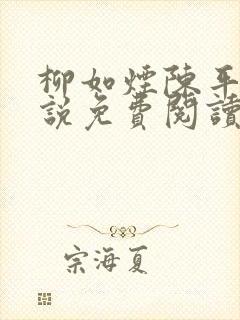 柳如煙陳平
說免費閱讀
宗海夏